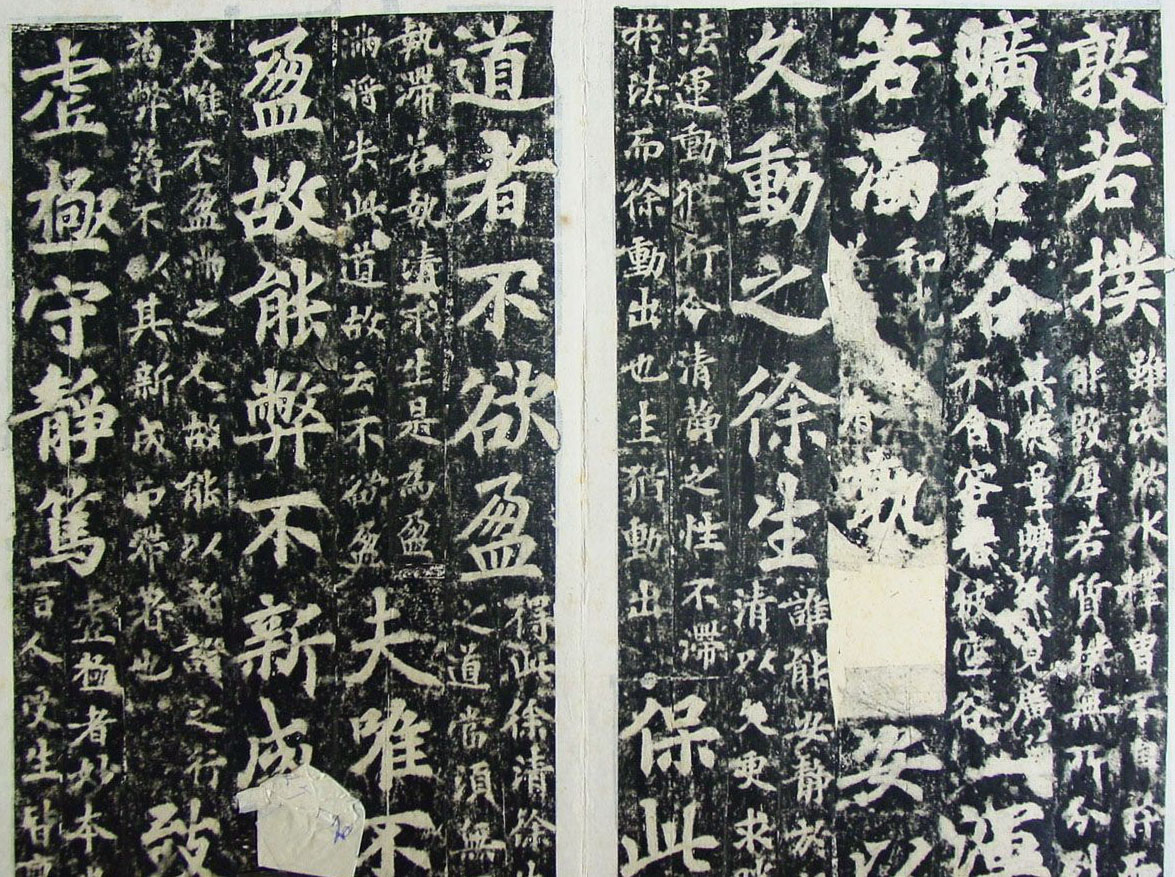 敦若撲
雖渙然冰釋曾不自矜而
能敦厚若質撲無所分別
曠若谷
其德量曠然寬廣
不含容養彼空谷
渾
若濁
和
有
孰
安以
久動之徐生
誰能安靜於
清以久更求
法運動修行令清靜之性不滯
於法而徐動出也生猶動出
保此
道者不欲盈
得此徐清徐生
之道當須無
執滯若執清求生是為盈
滿將失此道故云不欲盈
夫唯不
盈故能弊不新成
夫唯不盈滿之人故能以之行
為弊薄不以其新成而滯者也
致
虛極守靜篤
虛極者妙本
言人受生皆稟